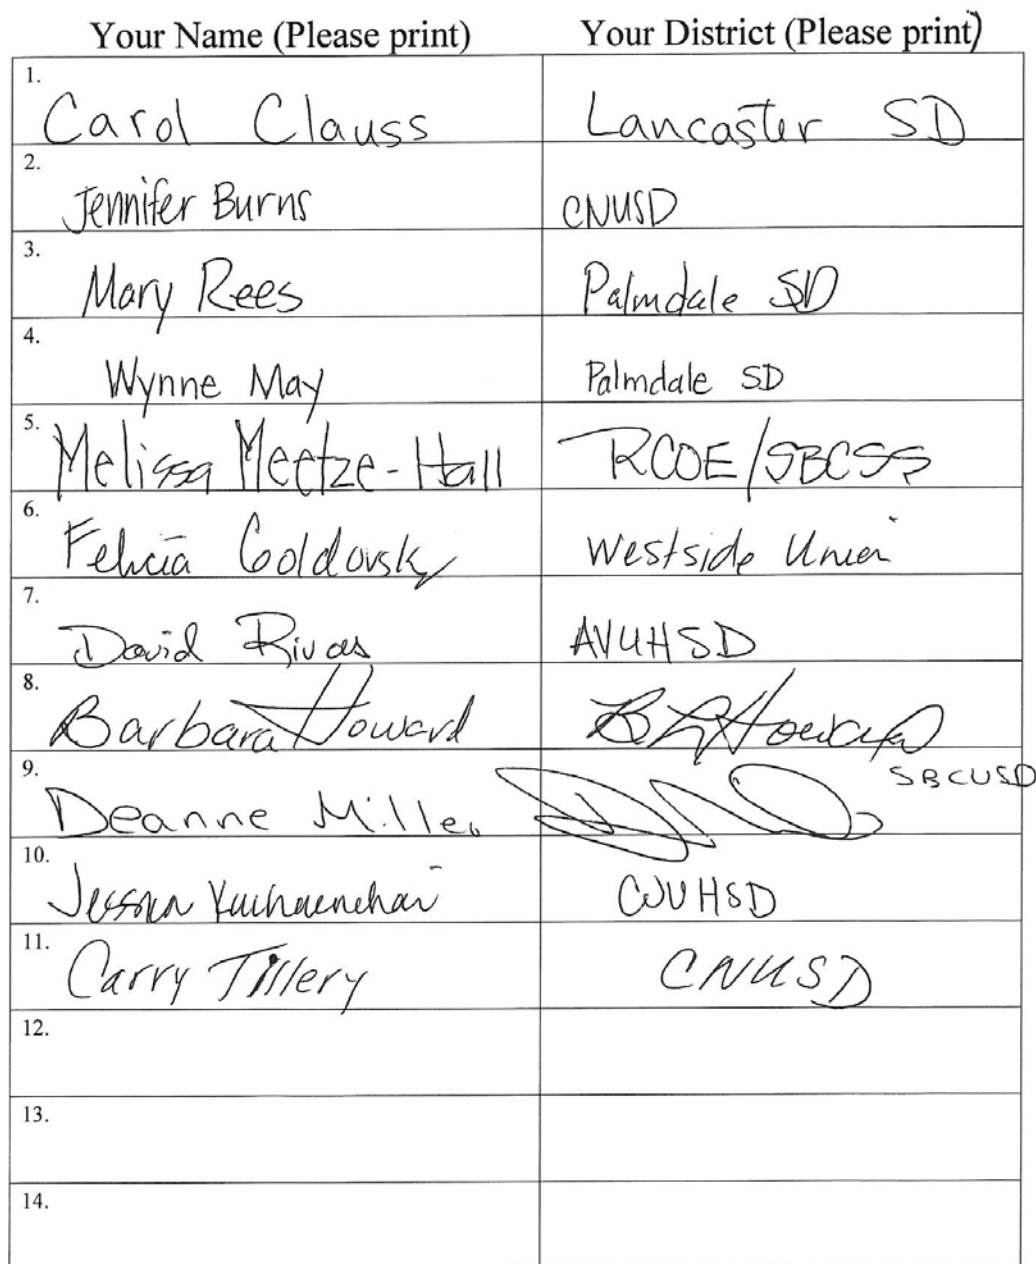 Your Name (Please print) Your District (Please print)
1. Carol Clauss Lancaster SD
2. Jennifer Burns CNUSD
3. Mary Rees Palmdale SD
4. Wynne May Palmdale SD
5. Melissa Meetze-Hall RCOE/SBCSS
6. Felicia Goldovsky Westside Union
7. David Rivas AVUHSD
8. Barbara Howard B L Howard
SBCUSD
9. Deanne Miller
10. CJUHSD
11. Carry Tillery CNUSD
12.
13.
14.